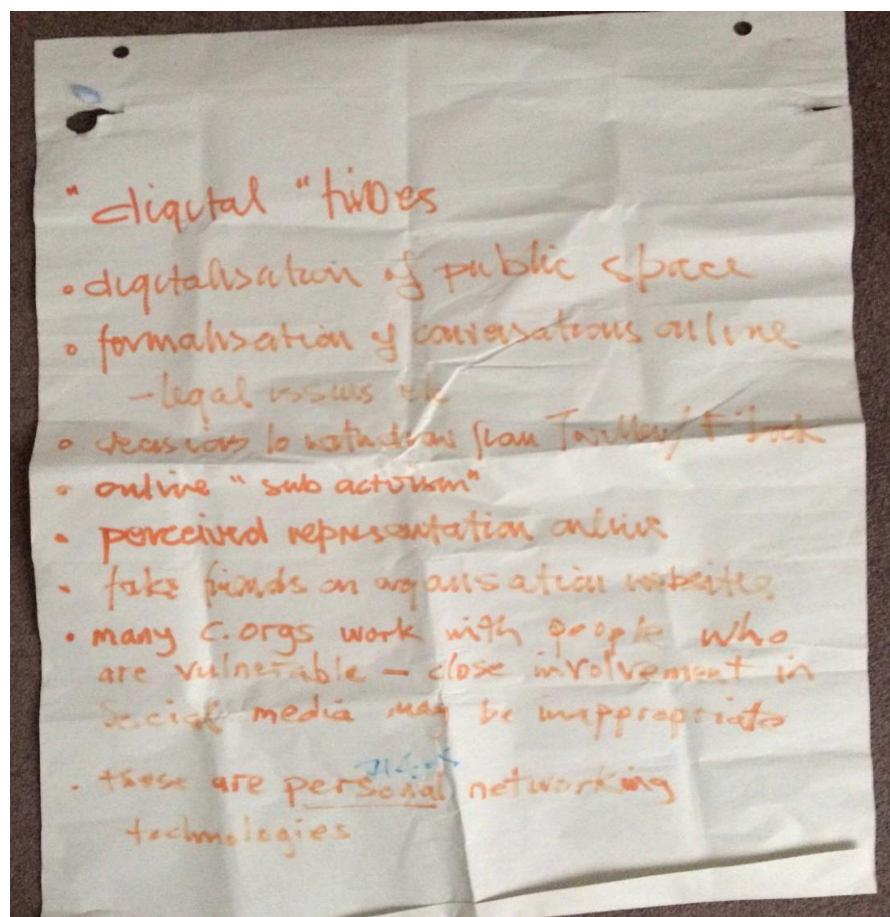 "digital" times
• digitalisation of public space
• formalisation of conversations online
– legal issues etc
• decisions to withdraw from Twitter/F.book
• online "sub activism"
• perceived representation online
• fake friends on organisation websites
• many c.orgs work with people who
are vulnerable – close involvement in
social media may be inappropriate
• these are personal networking
technologies